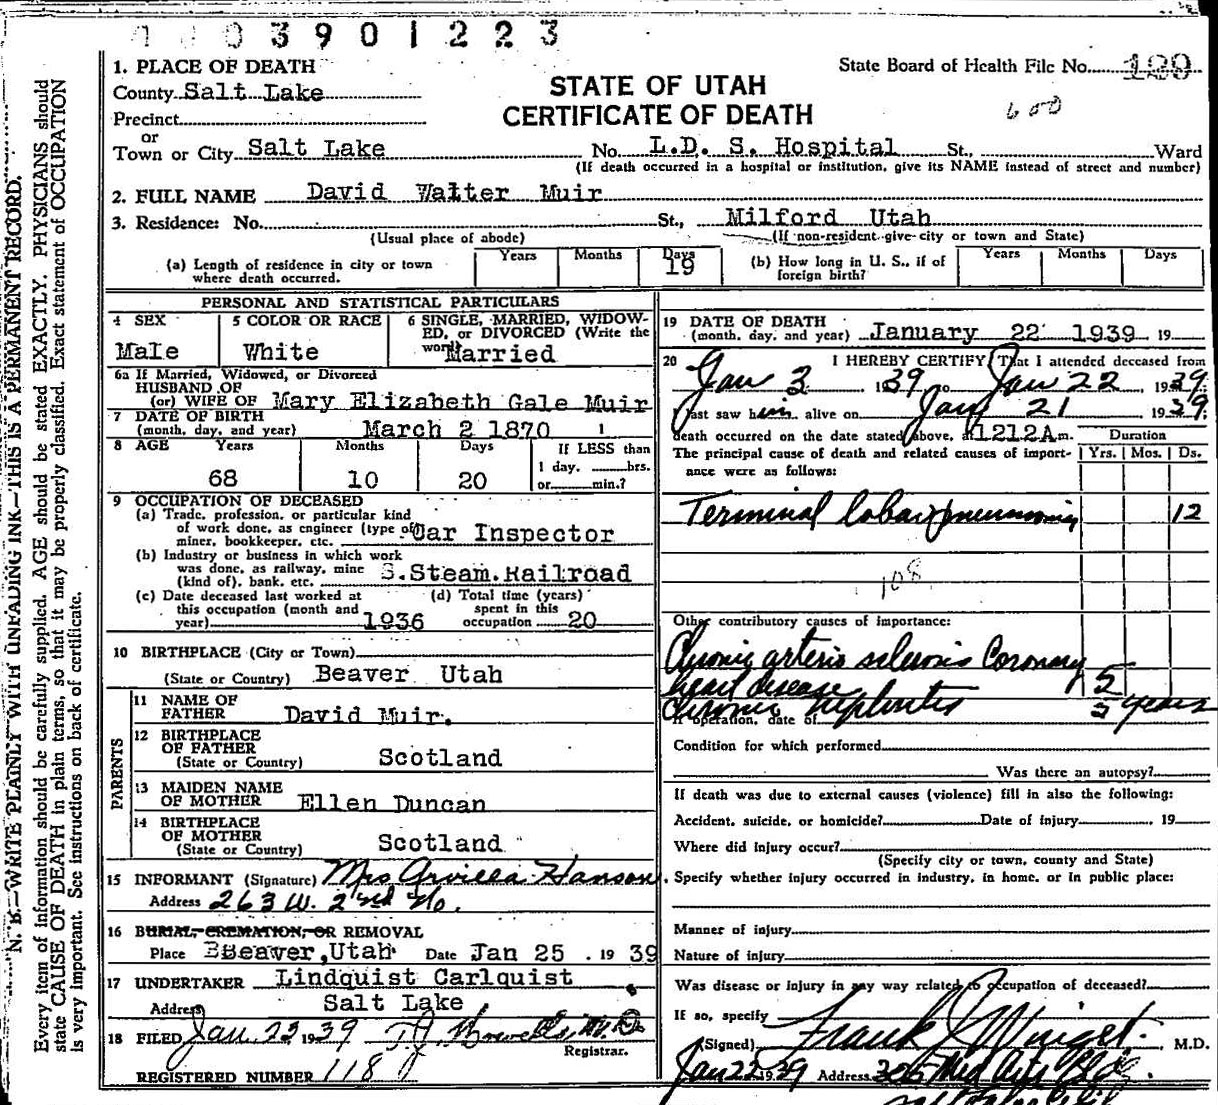 3901223
1. PLACE OF DEATH
State Board of Health File No.
County Salt Lake
STATE OF UTAH
CERTIFICATE OF DEATH
600
Precinct
or
Town or City Salt Lake No. L.D. S. Hospital St., Ward
(If death occurred in a hospital or institution, give its NAME instead of street and number)
2. FULL NAME David Walter Muir
3. Residence: No. St., Milford Utah
(Usual place of abode) (If non-resident give city or town and State)
(a) Length of residence in city or town where death occurred. Years Months Days 19
(b) How long in U. S., if of foreign birth? Years Months Days
PERSONAL AND STATISTICAL PARTICULARS
4 SEX Male
5 COLOR OR RACE White
6 SINGLE, MARRIED, WIDOWED, or DIVORCED (Write the word) Married
6a If Married, Widowed, or Divorced
HUSBAND OF
(or) WIFE OF Mary Elizabeth Gale Muir
7 DATE OF BIRTH
(month, day, and year) March 2 1870
8 AGE Years Months Days If LESS than
68 10 20 1 day, hrs.
or min.?
9 OCCUPATION OF DECEASED
(a) Trade, profession, or particular kind
of work done, as engineer (type of
miner, bookkeeper, etc. Car Inspector
(b) Industry or business in which work
was done, as railway, mine
(kind of), bank, etc. S.Steam.Railroad
(c) Date deceased last worked at
this occupation (month and
year) 1936
(d) Total time (years)
spent in this
occupation 20
10 BIRTHPLACE (City or Town)
(State or Country) Beaver Utah
PARENTS
11 NAME OF
FATHER David Muir.
12 BIRTHPLACE
OF FATHER
(State or Country) Scotland
13 MAIDEN NAME
OF MOTHER Ellen Duncan
14 BIRTHPLACE
OF MOTHER
(State or Country) Scotland
15 INFORMANT (Signature) Mrs Arvilla Hanson
Address 263 W. 2nd No.
16 BURIAL, CREMATION, OR REMOVAL
Place BBeaver,Utah Date Jan 25 . 19 39
17 UNDERTAKER Lindquist Carlquist
Address Salt Lake
18 FILED Jan. 23 1939 M.D.
Registrar.
REGISTERED NUMBER 118
19 DATE OF DEATH
(month, day, and year) January 22 1939 19
20 I HEREBY CERTIFY, That I attended deceased from
Jan 3 1939 to Jan 22, 1939.
I last saw him alive on Jan 21 1939.
death occurred on the date stated above, at 1212A m. Duration
The principal cause of death and related causes of importance were as follows: Yrs. Mos. Ds.
Terminal lobar pneumonia 12
108
Other contributory causes of importance:
Chronic arterio sclerosis Coronary
heart disease 5
Chronic nephritis years
If operation, date of
Condition for which performed
Was there an autopsy?
If death was due to external causes (violence) fill in also the following:
Accident, suicide, or homicide? Date of injury , 19
Where did injury occur?
(Specify city or town, county and State)
Specify whether injury occurred in industry, in home, or in public place:
Manner of injury
Nature of injury
Was disease or injury in any way related to occupation of deceased?
If so, specify
(Signed) Frank J , M.D.
Jan 22 1939 Address 305 Med Arts Bldg.
N. B.—WRITE PLAINLY WITH UNFADING INK—THIS IS A PERMANENT RECORD.
Every item of information should be carefully supplied. AGE should be stated EXACTLY. PHYSICIANS should
state CAUSE OF DEATH in plain terms, so that it may be properly classified. Exact statement of OCCUPATION
is very important. See instructions on back of certificate.